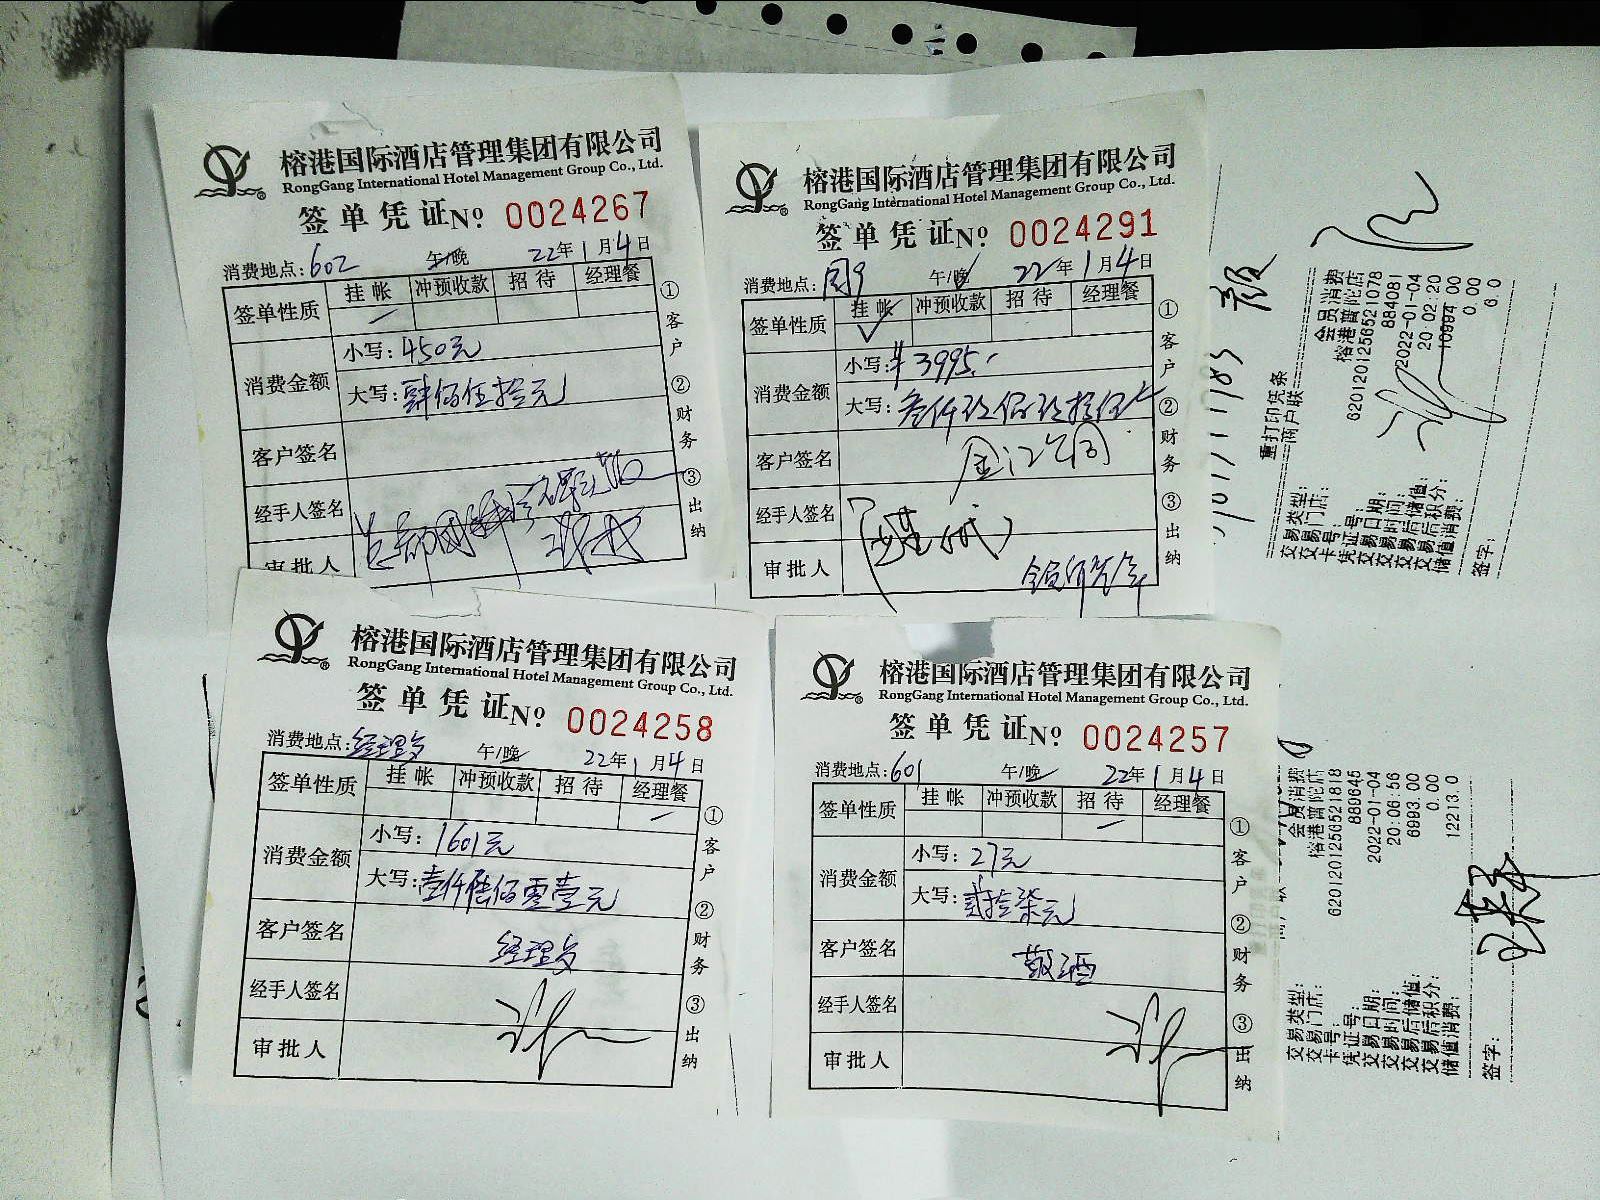 榕港国际酒店管理集团有限公司
RongGang International Hotel Management Group Co., Ltd.
签单凭证 № 0024267
消费地点:602 午/晚 22年1月4日
签单性质 挂帐 冲预收款 招待 经理餐
消费金额 小写:450元
大写:肆佰伍拾元
客户签名
经手人签名
审批人
①客户 ②财务 ③出纳
榕港国际酒店管理集团有限公司
RongGang International Hotel Management Group Co., Ltd.
签单凭证 № 0024291
消费地点: 午/晚 22年1月4日
签单性质 挂帐 冲预收款 招待 经理餐
✓
消费金额 小写:¥3995.-
大写:叁仟玖佰玖拾伍
客户签名
经手人签名
审批人
①客户 ②财务 ③出纳
榕港国际酒店管理集团有限公司
RongGang International Hotel Management Group Co., Ltd.
签单凭证 № 0024258
消费地点:经理餐 午/晚 22年1月4日
签单性质 挂帐 冲预收款 招待 经理餐
消费金额 小写:1601元
大写:壹仟陆佰零壹元
客户签名 经理餐
经手人签名
审批人
①客户 ②财务 ③出纳
榕港国际酒店管理集团有限公司
RongGang International Hotel Management Group Co., Ltd.
签单凭证 № 0024257
消费地点:601 午/晚 22年1月4日
签单性质 挂帐 冲预收款 招待 经理餐
消费金额 小写:27元
大写:贰拾柒元
客户签名 敬酒
经手人签名
审批人
①客户 ②财务 ③出纳
重打印凭条
商户联
交易类型: 会员消费
交易门店: 榕港普陀店
卡号: 6201201256521078
凭证号: 884081
交易日期: 2022-01-04
交易时间: 20:02:20
交易后储值: 10994.00
交易后积分: 0.00
储值消费: 6.0
签字:
交易类型: 会员消费
交易门店: 榕港普陀店
卡号: 6201201256521818
凭证号: 889645
交易日期: 2022-01-04
交易时间: 20:06:56
交易后储值: 6993.00
交易后积分: 0.00
储值消费: 12213.0
签字: